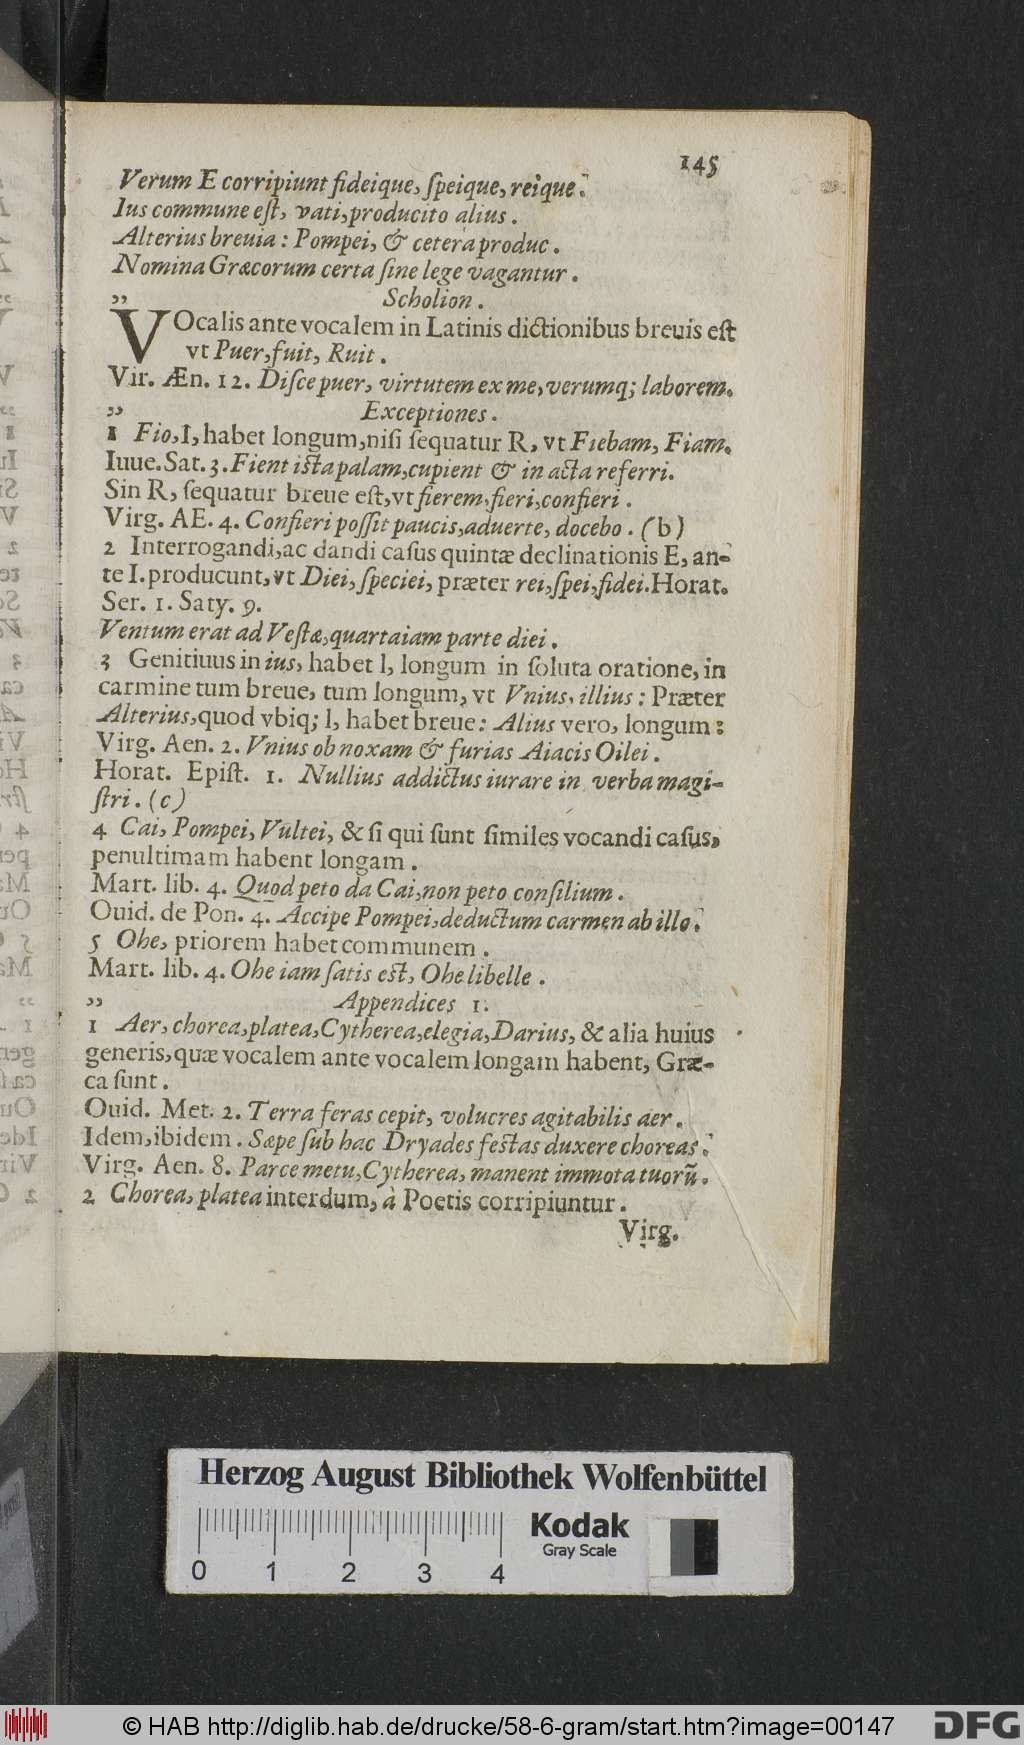 145
Verum E corripiunt fideique, ſpeique, reique.
Ius commune eſt, vati, producito alius.
Alterius breuia: Pompei, & cetera produc.
Nomina Græcorum certa ſine lege vagantur.
„ Scholion.
VOcalis ante vocalem in Latinis dictionibus breuis eſt
vt Puer, fuit, Ruit.
Vir. Æn. 12. Diſce puer, virtutem ex me, verumq; laborem.
„ Exceptiones.
1 Fio, I, habet longum, niſi ſequatur R, vt Fiebam, Fiam.
Iuue. Sat. 3. Fient iſta palam, cupient & in acta referri.
Sin R, ſequatur breue eſt, vt fierem, fieri, confieri.
Virg. AE. 4. Confieri poſſit paucis, aduerte, docebo. (b)
2 Interrogandi, ac dandi caſus quintæ declinationis E, an-
te I. producunt, vt Diei, ſpeciei, præter rei, ſpei, fidei. Horat.
Ser. 1. Saty. 9.
Ventum erat ad Veſtæ, quarta iam parte diei.
3 Genitiuus in ius, habet I, longum in ſoluta oratione, in
carmine tum breue, tum longum, vt Vnius, illius: Præter
Alterius, quod vbiq; I, habet breue: Alius vero, longum:
Virg. Aen. 2. Vnius ob noxam & furias Aiacis Oilei.
Horat. Epiſt. 1. Nullius addictus iurare in verba magi-
ſtri. (c)
4 Cai, Pompei, Vultei, & ſi qui ſunt ſimiles vocandi caſus,
penultimam habent longam.
Mart. lib. 4. Quod peto da Cai, non peto conſilium.
Ouid. de Pon. 4. Accipe Pompei, deductum carmen ab illo.
5 Ohe, priorem habet communem.
Mart. lib. 4. Ohe iam ſatis eſt, Ohe libelle.
„ Appendices 1.
1 Aer, chorea, platea, Cytherea, elegia, Darius, & alia huius
generis, quæ vocalem ante vocalem longam habent, Græ-
ca ſunt.
Ouid. Met. 2. Terra feras cepit, volucres agitabilis aer.
Idem, ibidem. Sæpe ſub hac Dryades feſtas duxere choreas.
Virg. Aen. 8. Parce metu, Cytherea, manent immota tuorũ.
2 Chorea, platea interdum, à Poetis corripiuntur.
Virg.
Herzog August Bibliothek Wolfenbüttel
Kodak
Gray Scale
0 1 2 3 4
© HAB http://diglib.hab.de/drucke/58-6-gram/start.htm?image=00147
DFG